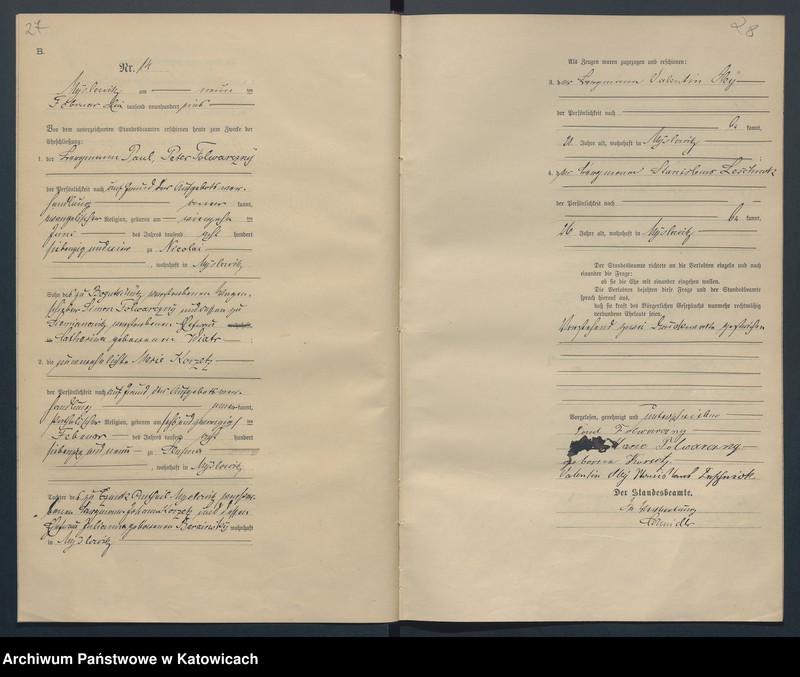 27
B.
Nr. 14
Myslowitz am neun ten
Februar tausend neunhundert
Vor dem unterzeichneten Standesbeamten erschienen heute zum Zwecke der
Eheschließung:
1. der Bergmann Paul, Peter Folwarczny
der Persönlichkeit nach auf Grund der Aufgebotsver-
handlung kannt,
evangelischer Religion, geboren am vierzehn ten
Juni des Jahres tausend acht hundert
siebenzig und eins zu Nicolai
, wohnhaft in Myslowitz
Sohn des zu verstorbenen
Simon Folwarczny und dessen zu
Siemianowitz verstorbenen Ehefrau wohnhaft
in Catharina geborenen Wiatr :
2. die unverehelichte Marie Korzetz
der Persönlichkeit nach auf Grund der Aufgebotsver-
handlung kannt,
katholischer Religion, geboren am ten
Februar des Jahres tausend acht hundert
siebenzig und neun zu
, wohnhaft in Myslowitz
Tochter des zu Myslowitz verstor-
benen Bergmann Johann Korzetz und dessen
Ehefrau Julianna geborenen wohnhaft
in Myslowitz
28
Als Zeugen waren zugezogen und erschienen:
3. der Bergmann Valentin
der Persönlichkeit nach
be kannt,
Jahre alt, wohnhaft in Myslowitz
4. der Bergmann Stanislaus Leschniok
der Persönlichkeit nach
be kannt,
26 Jahre alt, wohnhaft in Myslowitz
Der Standesbeamte richtete an die Verlobten einzeln und nach
einander die Frage:
ob sie die Ehe mit einander eingehen wollen.
Die Verlobten bejahten diese Frage und der Standesbeamte
sprach hierauf aus,
daß sie kraft des Bürgerlichen Gesetzbuchs nunmehr rechtmäßig
verbundene Eheleute seien.
Vorstehend zwei Druckworte gestrichen
Vorgelesen, genehmigt und unterschrieben
Paul Folwarczny
Marie Folwarczny
geborene Korzetz
Valentin Stanislaus Leschniok
Der Standesbeamte.
In Vertretung
Archiwum Państwowe w Katowicach